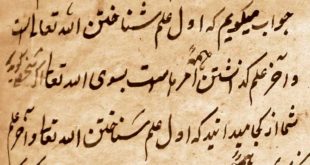 جواب میکویم که اول علم شناختن الله تعالی است
و آخر علم کذاشتن امر با است بسوی الله تعالی اگر
شما از کجا میدانید که اول علم شناختن الله تعالی و آخر علم